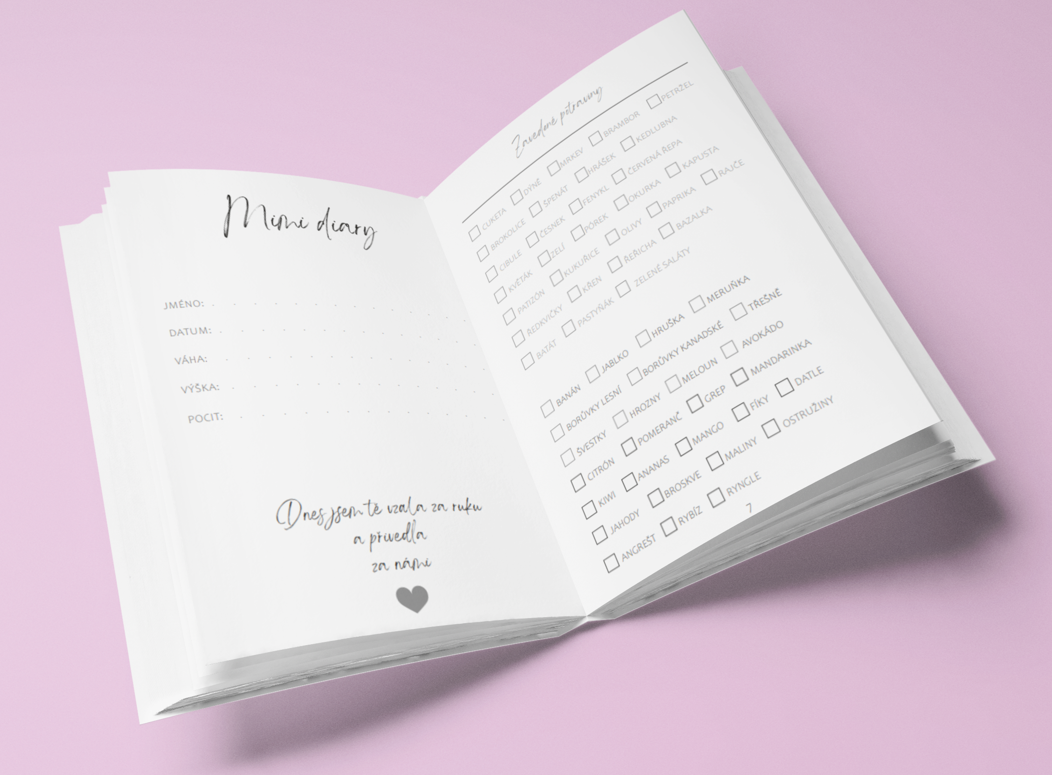 Mimi diary
JMÉNO:
DATUM:
VÁHA:
VÝŠKA:
POCIT:
Dnes jsem tě vzala za ruku
a přivedla
za námi
Zavedené potraviny
CUKETA DÝNĚ MRKEV BRAMBOR PETRŽEL
BROKOLICE ŠPENÁT HRÁŠEK KEDLUBNA
CIBULE ČESNEK FENYKL ČERVENÁ ŘEPA
KVĚTÁK ZELÍ PÓREK OKURKA KAPUSTA
PATIZÓN KUKUŘICE OLIVY PAPRIKA RAJČE
ŘEDKVIČKY KŘEN ŘEŘICHA BAZALKA
BATÁT PASTYŇÁK ZELENÉ SALÁTY
BANÁN JABLKO HRUŠKA MERUŇKA
BORŮVKY LESNÍ BORŮVKY KANADSKÉ TŘEŠNĚ
ŠVESTKY HROZNY MELOUN AVOKÁDO
CITRÓN POMERANČ GREP MANDARINKA
KIWI ANANAS MANGO FÍKY DATLE
JAHODY BROSKVE MALINY OSTRUŽINY
ANGREŠT RYBÍZ RYNGLE
7